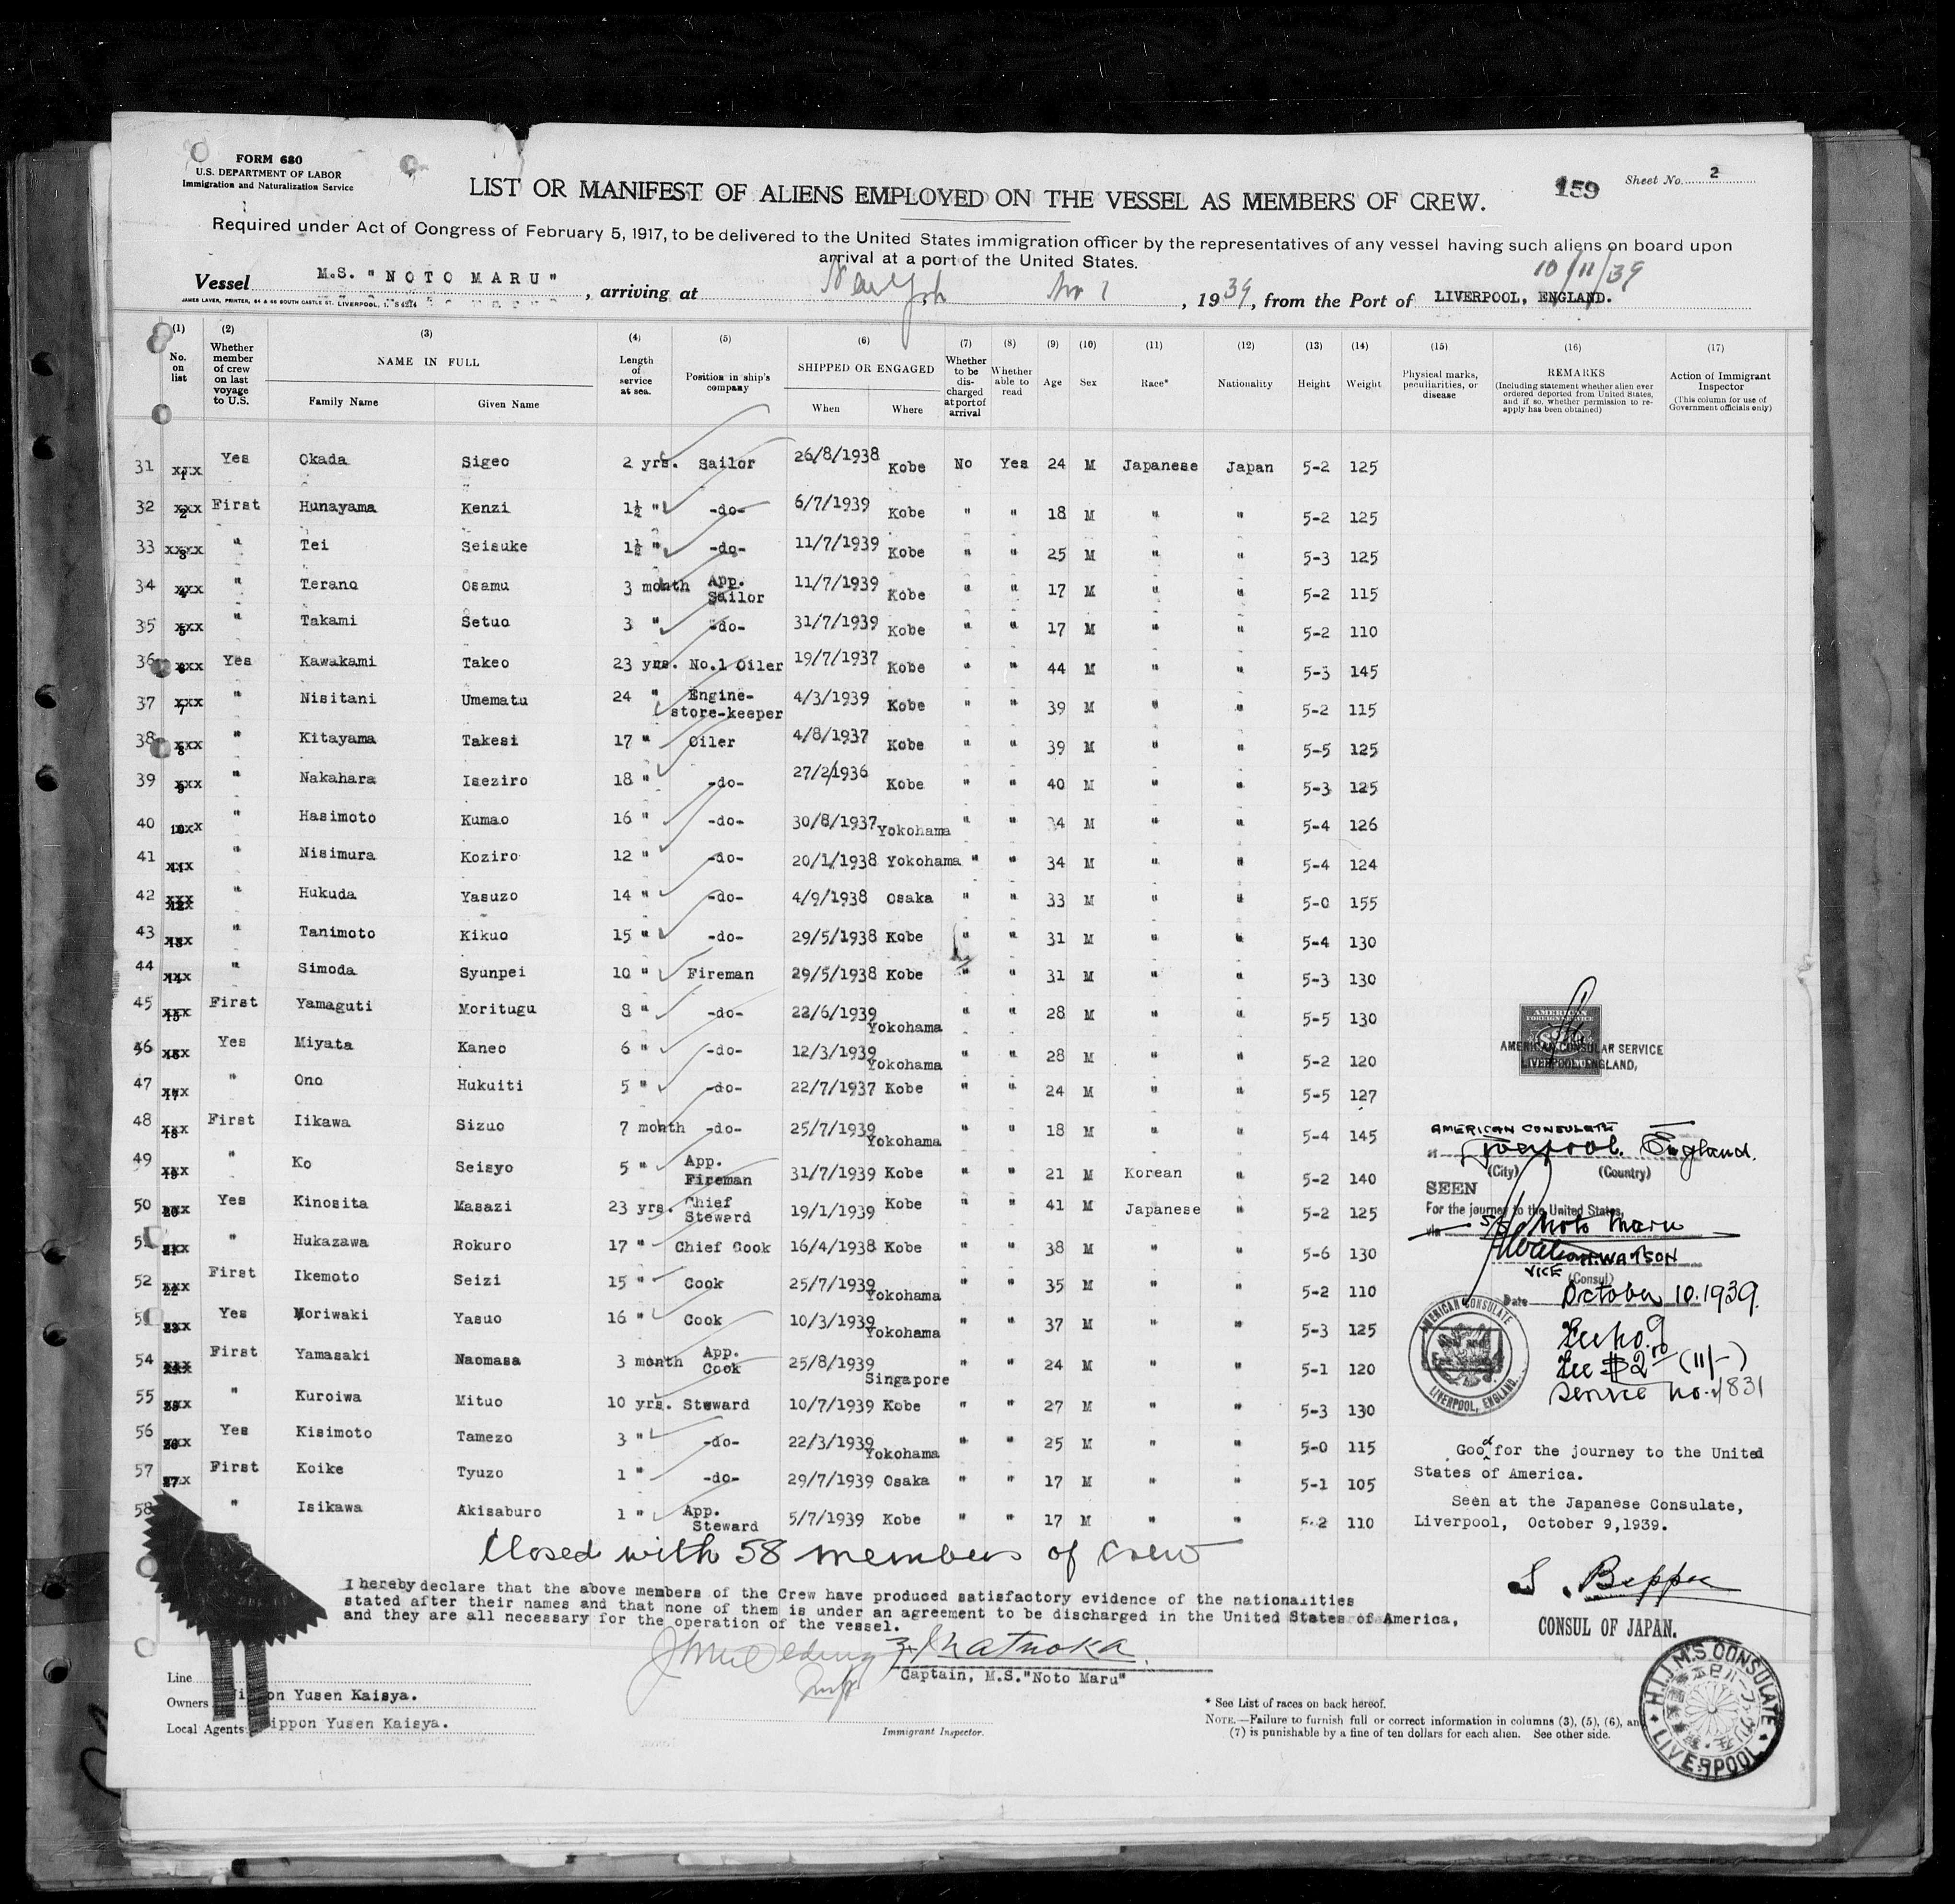 FORM 680
U.S. DEPARTMENT OF LABOR
Immigration and Naturalization Service
LIST OR MANIFEST OF ALIENS EMPLOYED ON THE VESSEL AS MEMBERS OF CREW.
159
Sheet No. 2
Required under Act of Congress of February 5, 1917, to be delivered to the United States immigration officer by the representatives of any vessel having such aliens on board upon
arrival at a port of the United States.
10/11/39
Vessel M.S. "NOTO MARU", arriving at New York Nov 1, 1939, from the Port of LIVERPOOL, ENGLAND.
JAMES LAVER, PRINTER, 64 & 66 SOUTH CASTLE ST. LIVERPOOL, 1.
(1) No. on list
(2) Whether member of crew on last voyage to U.S.
(3) NAME IN FULL Family Name Given Name
(4) Length of service at sea.
(5) Position in ship's company
(6) SHIPPED OR ENGAGED When Where
(7) Whether to be discharged at port of arrival
(8) Whether able to read
(9) Age
(10) Sex
(11) Race*
(12) Nationality
(13) Height
(14) Weight
(15) Physical marks, peculiarities, or disease
(16) REMARKS (Including statement whether alien ever ordered deported from United States, and if so, whether permission to re-apply has been obtained)
(17) Action of Immigrant Inspector (This column for use of Government officials only)
31 Yes Okada Sigeo 2 yrs. Sailor 26/8/1938 Kobe No Yes 24 M Japanese Japan 5-2 125
32 First Hunayama Kenzi 1½ " -do- 6/7/1939 Kobe " " 18 M " " 5-2 125
33 " Tei Seisuke 1½ " -do- 11/7/1939 Kobe " " 25 M " " 5-3 125
34 " Terano Osamu 3 month App. Sailor 11/7/1939 Kobe " " 17 M " " 5-2 115
35 " Takami Setuo 3 " -do- 31/7/1939 Kobe " " 17 M " " 5-2 110
36 Yes Kawakami Takeo 23 yrs. No.1 Oiler 19/7/1937 Kobe " " 44 M " " 5-3 145
37 " Nisitani Umematu 24 " Engine-store-keeper 4/3/1939 Kobe " " 39 M " " 5-2 115
38 " Kitayama Takesi 17 " Oiler 4/8/1937 Kobe " " 39 M " " 5-5 125
39 " Nakahara Iseziro 18 " -do- 27/2/1936 Kobe " " 40 M " " 5-3 125
40 " Hasimoto Kumao 16 " -do- 30/8/1937 Yokohama " " 34 M " " 5-4 126
41 " Nisimura Koziro 12 " -do- 20/1/1938 Yokohama " " 34 M " " 5-4 124
42 " Hukuda Yasuzo 14 " -do- 4/9/1938 Osaka " " 33 M " " 5-0 155
43 " Tanimoto Kikuo 15 " -do- 29/5/1938 Kobe " " 31 M " " 5-4 130
44 " Simoda Syunpei 10 " Fireman 29/5/1938 Kobe " " 31 M " " 5-3 130
45 First Yamaguti Moritugu 8 " -do- 22/6/1939 Yokohama " " 28 M " " 5-5 130
46 Yes Miyata Kaneo 6 " -do- 12/3/1939 Yokohama " " 28 M " " 5-2 120
47 " Ono Hukuiti 5 " -do- 22/7/1937 Kobe " " 24 M " " 5-5 127
48 First Iikawa Sizuo 7 month -do- 25/7/1939 Yokohama " " 18 M " " 5-4 145
49 " Ko Seisyo 5 " App. Fireman 31/7/1939 Kobe " " 21 M Korean " 5-2 140
50 Yes Kinosita Masazi 23 yrs. Chief Steward 19/1/1939 Kobe " " 41 M Japanese " 5-2 125
5 " Hukazawa Rokuro 17 " Chief Cook 16/4/1938 Kobe " " 38 M " " 5-6 130
52 First Ikemoto Seizi 15 " Cook 25/7/1939 Yokohama " " 35 M " " 5-2 110
5 Yes Moriwaki Yasuo 16 " Cook 10/3/1939 Yokohama " " 37 M " " 5-3 125
54 First Yamasaki Naomasa 3 month App. Cook 25/8/1939 Singapore " " 24 M " " 5-1 120
55 " Kuroiwa Mituo 10 yrs. Steward 10/7/1939 Kobe " " 27 M " " 5-3 130
56 Yes Kisimoto Tamezo 3 " -do- 22/3/1939 Yokohama " " 25 M " " 5-0 115
57 First Koike Tyuzo 1 " -do- 29/7/1939 Osaka " " 17 M " " 5-1 105
58 " Isikawa Akisaburo 1 " App. Steward 5/7/1939 Kobe " " 17 M " " 5-2 110
AMERICAN FOREIGN SERVICE
AMERICAN CONSULAR SERVICE
LIVERPOOL, ENGLAND,
AMERICAN CONSULATE
at Liverpool. England.
(City) (Country)
SEEN
For the journey to the United States,
via SS Noto Maru
WATSON
VICE (Consul)
Date October 10. 1939.
AMERICAN CONSULATE LIVERPOOL, ENGLAND.
Fee $2.00 (11/-)
Service no. 4831
Good for the journey to the United
States of America.
Seen at the Japanese Consulate,
Liverpool, October 9,1939.
S. Beppu
CONSUL OF JAPAN.
H.I.J.M'S CONSULATE LIVERPOOL
Closed with 58 members of crew
I hereby declare that the above members of the Crew have produced satisfactory evidence of the nationalities
stated after their names and that none of them is under an agreement to be discharged in the United States of America,
and they are all necessary for the operation of the vessel.
Captain, M.S."Noto Maru"
Line
Owners Nippon Yusen Kaisya.
Local Agents Nippon Yusen Kaisya.
Immigrant Inspector.
* See List of races on back hereof.
NOTE.—Failure to furnish full or correct information in columns (3), (5), (6), and
(7) is punishable by a fine of ten dollars for each alien. See other side.